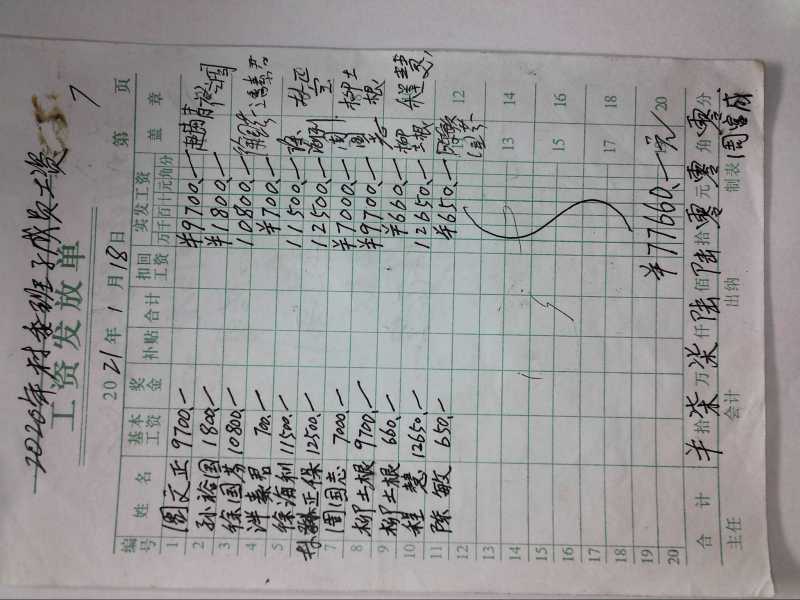 2020年村委班子成员工资
工资发放单
2021年1月18日 第 页 7
编号 姓名 基本工资 奖金 补贴 合计 扣回工资 实发工资 盖章
万千百十元角分
1 周文正 9700.— ¥9700.—
2 孙裕国 1800.— ¥1800.— 孙裕国
3 徐国芬 10800.— 10800.—
4 洪素君 700.— ¥700.— 洪素君
5 徐海利 11500.— 11500.—
正保 12500.— 12500.—
7 周国志 7000.— ¥7000.— 周国志
8 柳土根 9700.— ¥9700.— 柳土根
9 柳土根 660.— ¥660.— 柳土根
10 程慧 12650.— 12650.— 程慧
11 陈敏 650.— ¥650.— 陈敏
12 12
13 13
14 14
15 15
16 16
17 17
18 18
19
20 ¥77660.—元 20
合计 ¥拾柒万柒仟陆佰陆拾零元零角零分
主任 会计 出纳 制表 周富成